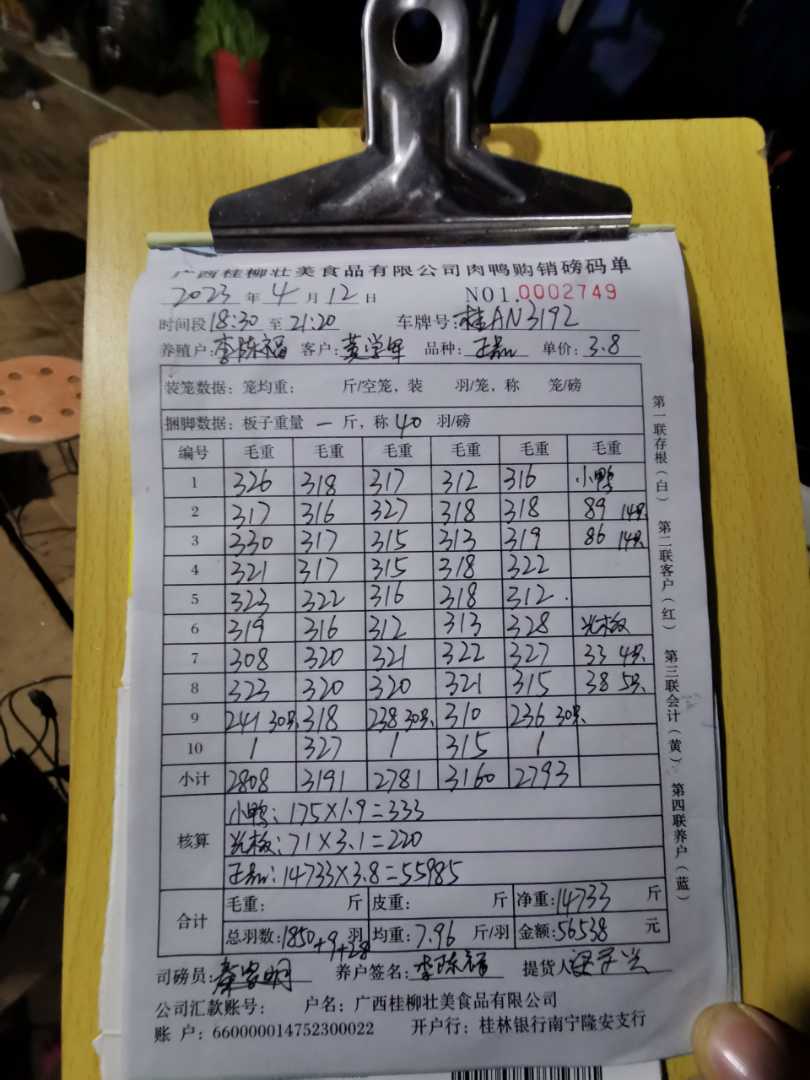 广西桂柳壮美食品有限公司肉鸭购销磅码单
2023 年 4 月 12 日 NO1.0002749
时间段 18:30 至 21:20 车牌号: 桂AN3192
养殖户: 李陈福 客户: 黄学军 品种: 正品 单价: 3.8
装笼数据: 笼均重: 斤/空笼, 装 羽/笼, 称 笼/磅
捆脚数据: 板子重量 一 斤, 称 40 羽/磅
编号 毛重 毛重 毛重 毛重 毛重 毛重
1 326 318 317 312 316 小鸭
2 317 316 327 318 318 89 14只
3 330 317 315 313 319 86 14只
4 321 317 315 318 322
5 323 322 316 318 312.
6 319 316 312 313 328 光板
7 308 320 321 322 327 33 4只
8 323 320 320 321 315 38 5只
9 241 30只 318 238 30只 310 236 30只
10 1 327 1 315 1
小计 2808 3191 2781 3160 2793
核算
小鸭: 175×1.9=333
光板: 71×3.1=220
正品: 14733×3.8=55985
合计 毛重: 斤 皮重: 斤 净重: 14733 斤
总羽数: 1850+9+28 羽 均重: 7.96 斤/羽 金额: 56538 元
司磅员: 养户签名: 李陈福 提货人
公司汇款账号: 户名: 广西桂柳壮美食品有限公司
账户: 660000014752300022 开户行: 桂林银行南宁隆安支行
第一联存根(白) 第二联客户(红) 第三联会计(黄) 第四联养户(蓝)